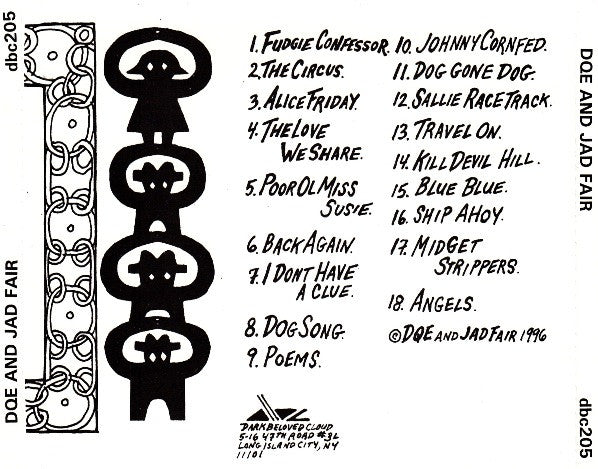 dbc205
DQE AND JAD FAIR
1. FUDGIE CONFESSOR.
2. THE CIRCUS.
3. ALICE FRIDAY
4. THE LOVE
WE SHARE.
5. POOR OL MISS
SUSIE.
6. BACK AGAIN.
7. I DONT HAVE
A CLUE.
8. DOG SONG.
9. POEMS.
10. JOHNNY CORNFED.
11. DOG GONE DOG.
12. SALLIE RACE TRACK.
13. TRAVEL ON.
14. KILL DEVIL HILL.
15. BLUE BLUE.
16. SHIP AHOY.
17. MIDGET
STRIPPERS.
18. ANGELS.
© DQE AND JAD FAIR 1996
DARK BELOVED CLOUD
5-16 47TH ROAD #3L
LONG ISLAND CITY, NY
11101
DQE AND JAD FAIR
dbc205